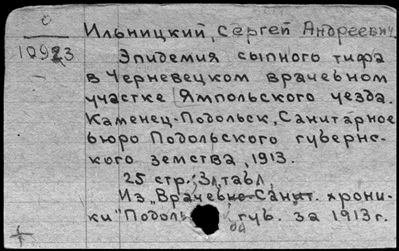 0
10923
Ильницкий, Сергей Андреевич.
Эпидемия сыпного тифа
в Черневецком врачебном
участке Ямпольского уезда.
Каменец-Подольск, Санитарное
бюро Подольского губернс-
кого земства, 1913.
25 стр; 3л,табл,
Из „Врачебно-Санит. хрони-
ки" Подоль губ. за 1913г.